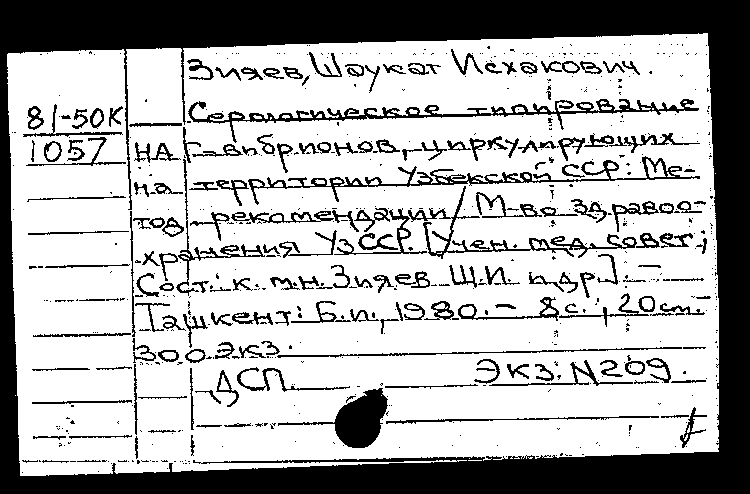 Зияев, Шаукат Исхакович.
81-50К
1057
Серологическое типирование
НАГ-вибрионов, циркулирующих
на территории Узбекской ССР: Ме-
тод. рекомендации / М-во здравоо-
хранения УзССР. [Учен. мед. совет;
Сост.: к.м.н. Зияев Ш.И. и др]. —
Ташкент: Б.и., 1980. - 8 с.; 20 см. -
300 экз.
ДСП. Экз: N 209.